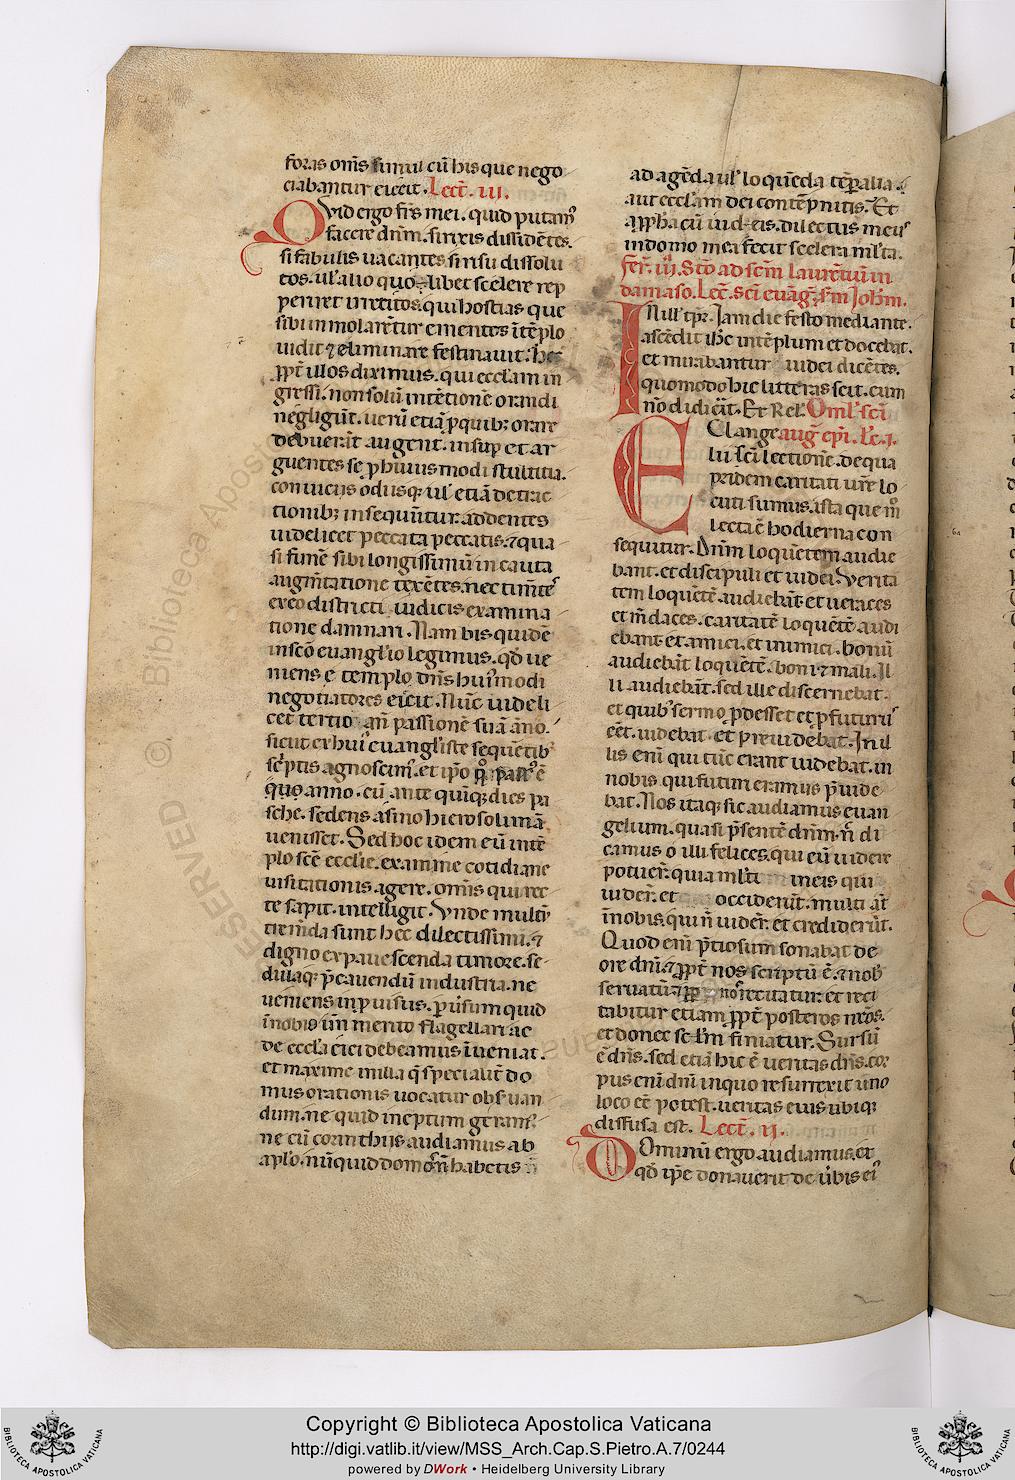 foras om̅s simul cu̅ his que nego
ciabantur eiecit. Lect̅. iii.
Quid ergo fr̅s mei. quid putam᷒
facere dn̅m. si rixis disside̅tes.
si fabulis vacantes si risu dissolu
tos. ul' alio quolibet scelere rep
periret irretitos. qui hostias que
sibi inmolare̅tur ementes i̅te̅plo
uidit ⁊ eliminare festinauit. hec
ꝓpt̅ illos diximus. qui eccl'am in
gressi. non solu̅ inte̅tione̅ orandi
negligu̅t. ueru̅ etia̅ ꝓ quib; orare
debuera̅t augent. insup̅ et ar
guentes se ꝓ huiusmodi stultitia.
conuicijs odiisq; ul' etia̅ detrac
tionib; insequu̅tur. addentes
uidelicet peccata peccatis. ⁊ qua
si fune̅ sibi longissimu̅ incauta
augm̅tatione texe̅tes. nec tim̅tes
ex eo districti iudicis examina
tione damnari. Nam bis quide̅
in sc̅o euangl'io legimus. qd̅ ue
niens e̅ templo dn̅s hui᷒modi
negotiatores eiecit. Nu̅c uideli
cet tertio an̅ passione̅ sua̅ a̅no.
sicut ex hui᷒ euangl'iste seque̅tib᷒
sc̅ptis agnoscim᷒. et ip̅o
quo anno. cu̅ ante qui̅q; dies pa
sche. sedens asino hierosolima̅
uenisset. Sed hoc idem eu̅ inte̅
plo sc̅e ecclie. examine cotidiane
uisitationis. agere. om̅s qui rec
te sapit. intelligit. Vnde multu̅
trem̅da sunt hec dilectissimi. ⁊
digno expauescenda timore. se
dulaq; p̅cauendu̅ industria. ne
ueniens inꝓuisus. peruersum quid
i̅nobis un̅ merito flagellari ac
de eccl'a eici debeamus i̅ueniat.
et maxime in illa q̅ specialit̅ do
mus orationis uocatur obs̅uan
dum. ne quid ineptum geram᷒.
ne cu̅ corinthiis audiamus ab
apl'o. nu̅quid domos n̅ habetis
ad age̅da ul' loque̅da te̅p̅alia.
aut eccl'am dei conte̅pnitis. Et
a ꝓph̅a cu̅ iudeis. dilectus meus
in domo mea fecit scelera ml'ta.
Fer̅. iii. Stō ad sc̅m laurentiu̅ in
damaso. Lec̅. sc̅i eua̅g̅. s̅m Joh̅m.
In ill' tp̅r. Jam die festo mediante.
asce̅dit ih̅c inte̅plum et docebat.
et mirabantur iudei dice̅tes.
quomodo hic litteras scit. cum
no̅ didic̅it. Et Rel'. Oml' sc̅i
aug̅ ep̅i. le̅. i.
Euange
lii sc̅i lectione̅. de qua
pridem caritati ur̅e lo
cuti sumus. ista que m̊
lecta e̅ hodierna con
sequitur. Dn̅m loque̅tem audie
bant. et discipuli et iudei. Verita
tem loque̅te̅. audieba̅t. et ueraces
et me̅daces. caritate̅ loque̅te̅. audi
ebant. et amici. et inimici. bonu̅
audieba̅t loque̅te̅. boni ⁊ mali. Il
li audieba̅t. sed ille discernebat.
et quib᷒ sermo ꝓdesset et ꝓfuturus
ee̅t. uidebat et preuidebat. In il
lis eni̅ qui tu̅c erant uidebat. in
nobis qui futuri eramus p̅uide
bat. Nos itaq; sic audiamus euan
gelium. quasi p̅sente̅ dn̅m. n̅ di
camus o illi felices. qui eu̅ uidere
potuer̅. quia ml'ti in eis qui
uider̅. et occideru̅t. multi at̅
i̅ nobis. qui n̅ uider̅. et credideru̅t.
Quod eni̅ p̅tiosum sonabat de
ore dn̅i. ⁊ ꝓpt̅ nos scriptu̅ e̅. ⁊ nob᷒
seruatu̅ ⁊ ꝓp̅ nos recitatur. et reci
tabitur etiam ꝓpt̅ posteros nr̅os.
et donec sel'm finiatur. Sursu̅
e̅ dn̅s. sed etia̅ hic e̅ ueritas dn̅s. cor
pus eni̅ dn̅i in quo resurrexit uno
loco ee̅ potest. ueritas eius ubiq;
diffusa est. Lect̅. ij.
Dominu̅ ergo audiamus. et
qd̅ ip̅e donauerit de u̅bis ei᷒
© Biblioteca Aposto
ESERVED
Copyright © Biblioteca Apostolica Vaticana
http://digi.vatlib.it/view/MSS_Arch.Cap.S.Pietro.A.7/0244
powered by DWork • Heidelberg University Library
BIBLIOTECA APOSTOLICA VATICANA
BIBLIOTECA APOSTOLICA VATICANA